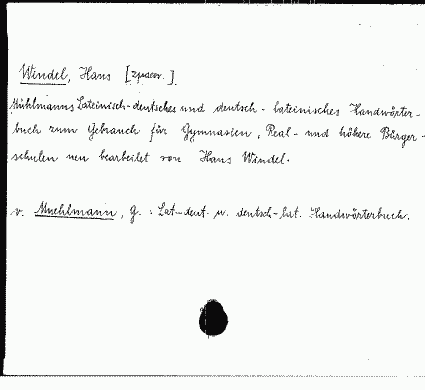 Windel, Hans [zpacov.].
Mühlmanns Lateinisch-deutsches und deutsch-lateinisches Handwörter-
buch zum Gebrauch für Gymnasien, Real- und höhere Bürger-
schulen neu bearbeitet von Hans Windel.
v. Muehlmann, G. : Lat-deut. u. deutsch-lat. Handwörterbuch.